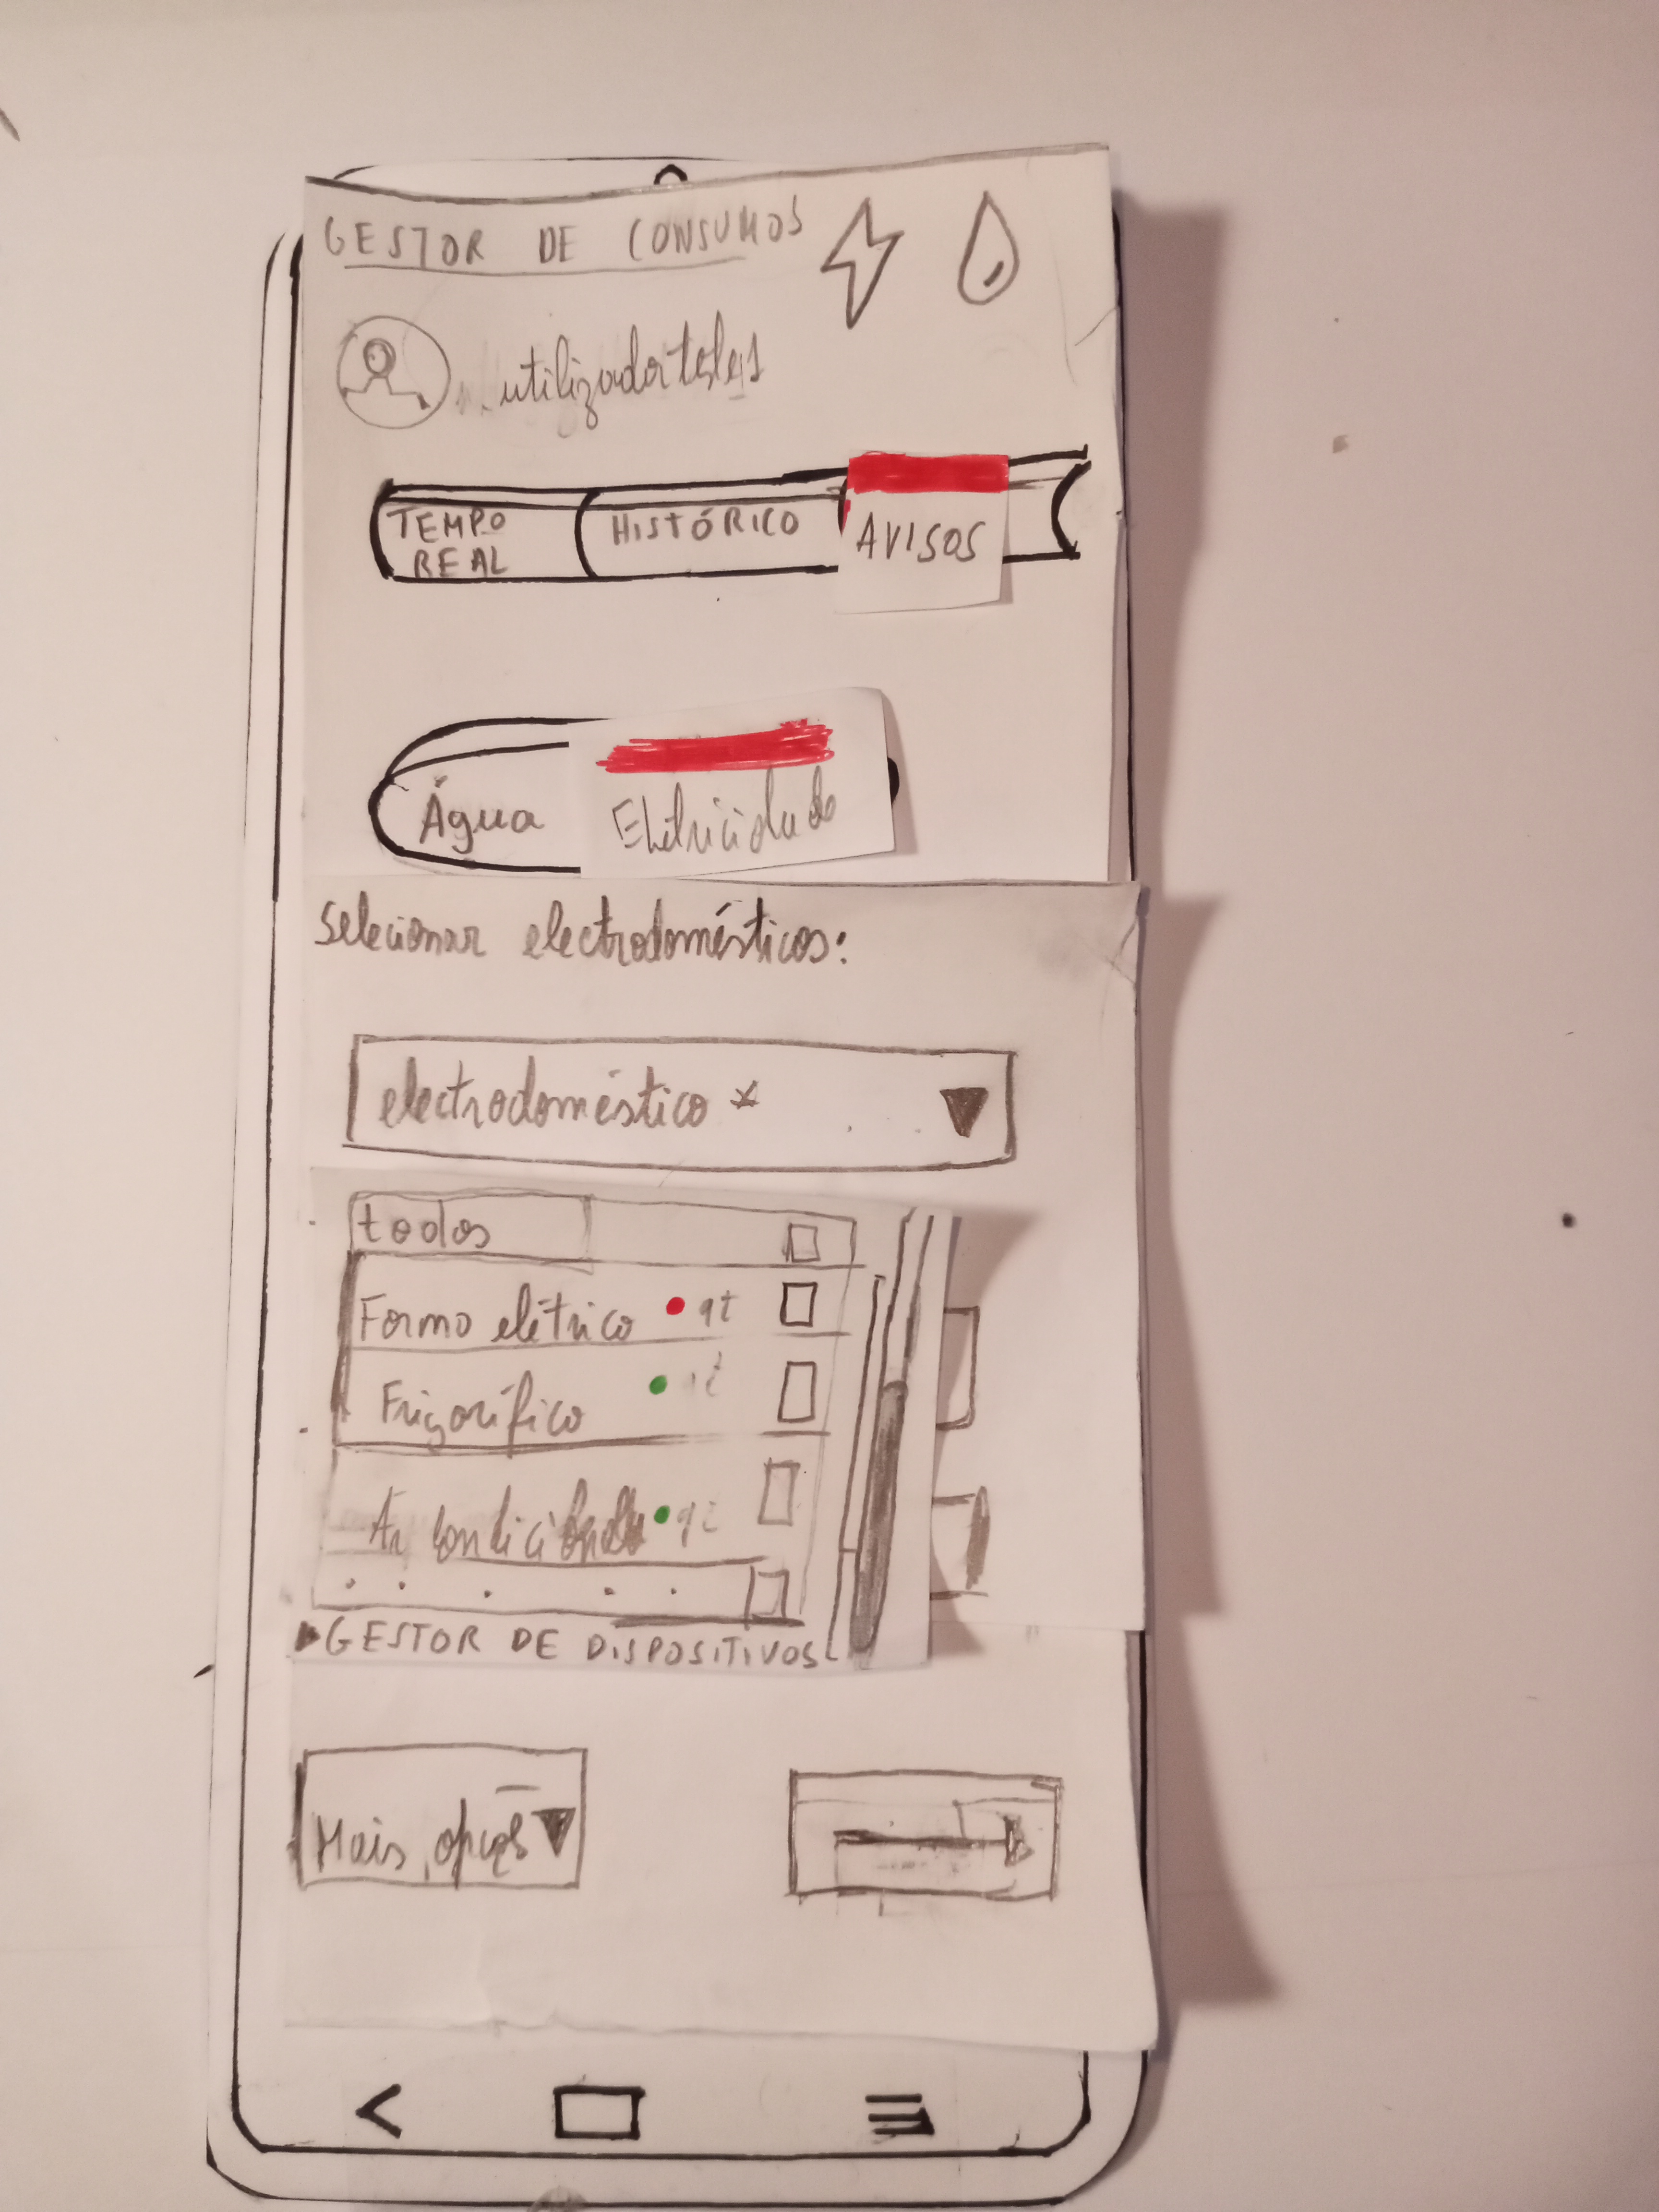 GESTOR DE CONSUMOS
TEMPO
REAL
HISTÓRICO
AVISOS
Água
Eletricidade
Selecionar electrodomésticos:
electrodoméstico *
todos
Forno elétrico qt
Frigorífico
Ar Condicionado qt
GESTOR DE DISPOSITIVOS
Mais opções